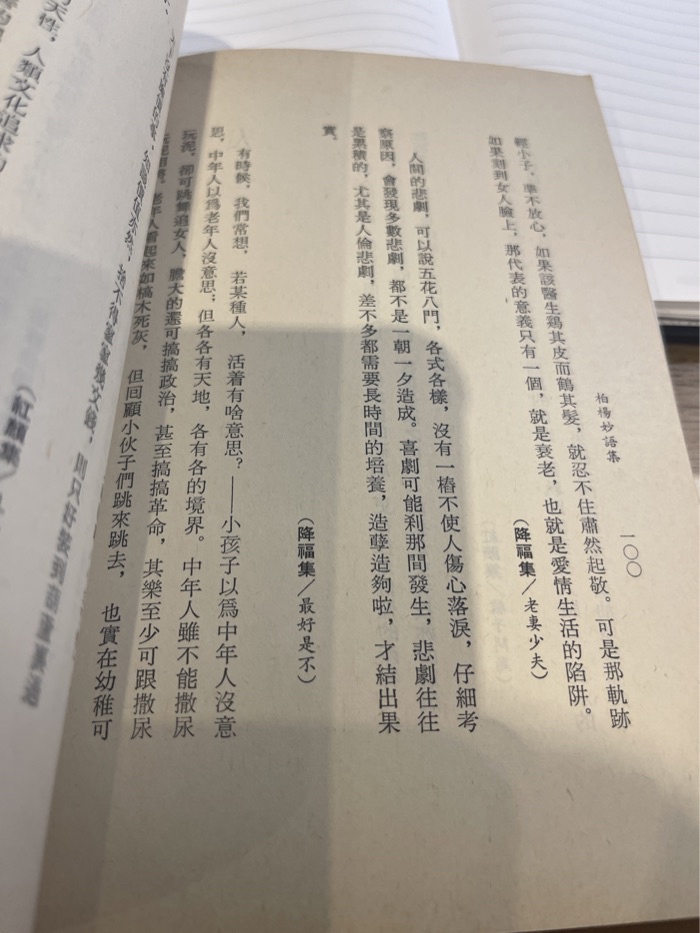 柏楊妙語集
一〇〇
輕小子，準不放心，如果該醫生鷄其皮而鶴其髮，就忍不住肅然起敬。可是那軌跡
如果刻到女人臉上，那代表的意義只有一個，就是衰老，也就是愛情生活的陷阱。
（降福集／老妻少夫）
人間的悲劇，可以說五花八門，各式各樣，沒有一樁不使人傷心落淚，仔細考
察原因，會發現多數悲劇，都不是一朝一夕造成。喜劇可能剎那間發生，悲劇往往
是累積的，尤其是人倫悲劇，差不多都需要長時間的培養，造孽造夠啦，才結出果
實。
（降福集／最好是不）
有時候，我們常想，若某種人，活着有啥意思？——小孩子以爲中年人沒意
思，中年人以爲老年人沒意思；但各各有天地，各有各的境界。中年人雖不能撒尿
玩泥，卻可跳舞追女人，膽大的還可搞搞政治，甚至搞搞革命，其樂至少可跟撒尿
老年人看起來如槁木死灰，但回顧小伙子們跳來跳去，也實在幼稚可
（紅顏集／
天性，人類文化追求的